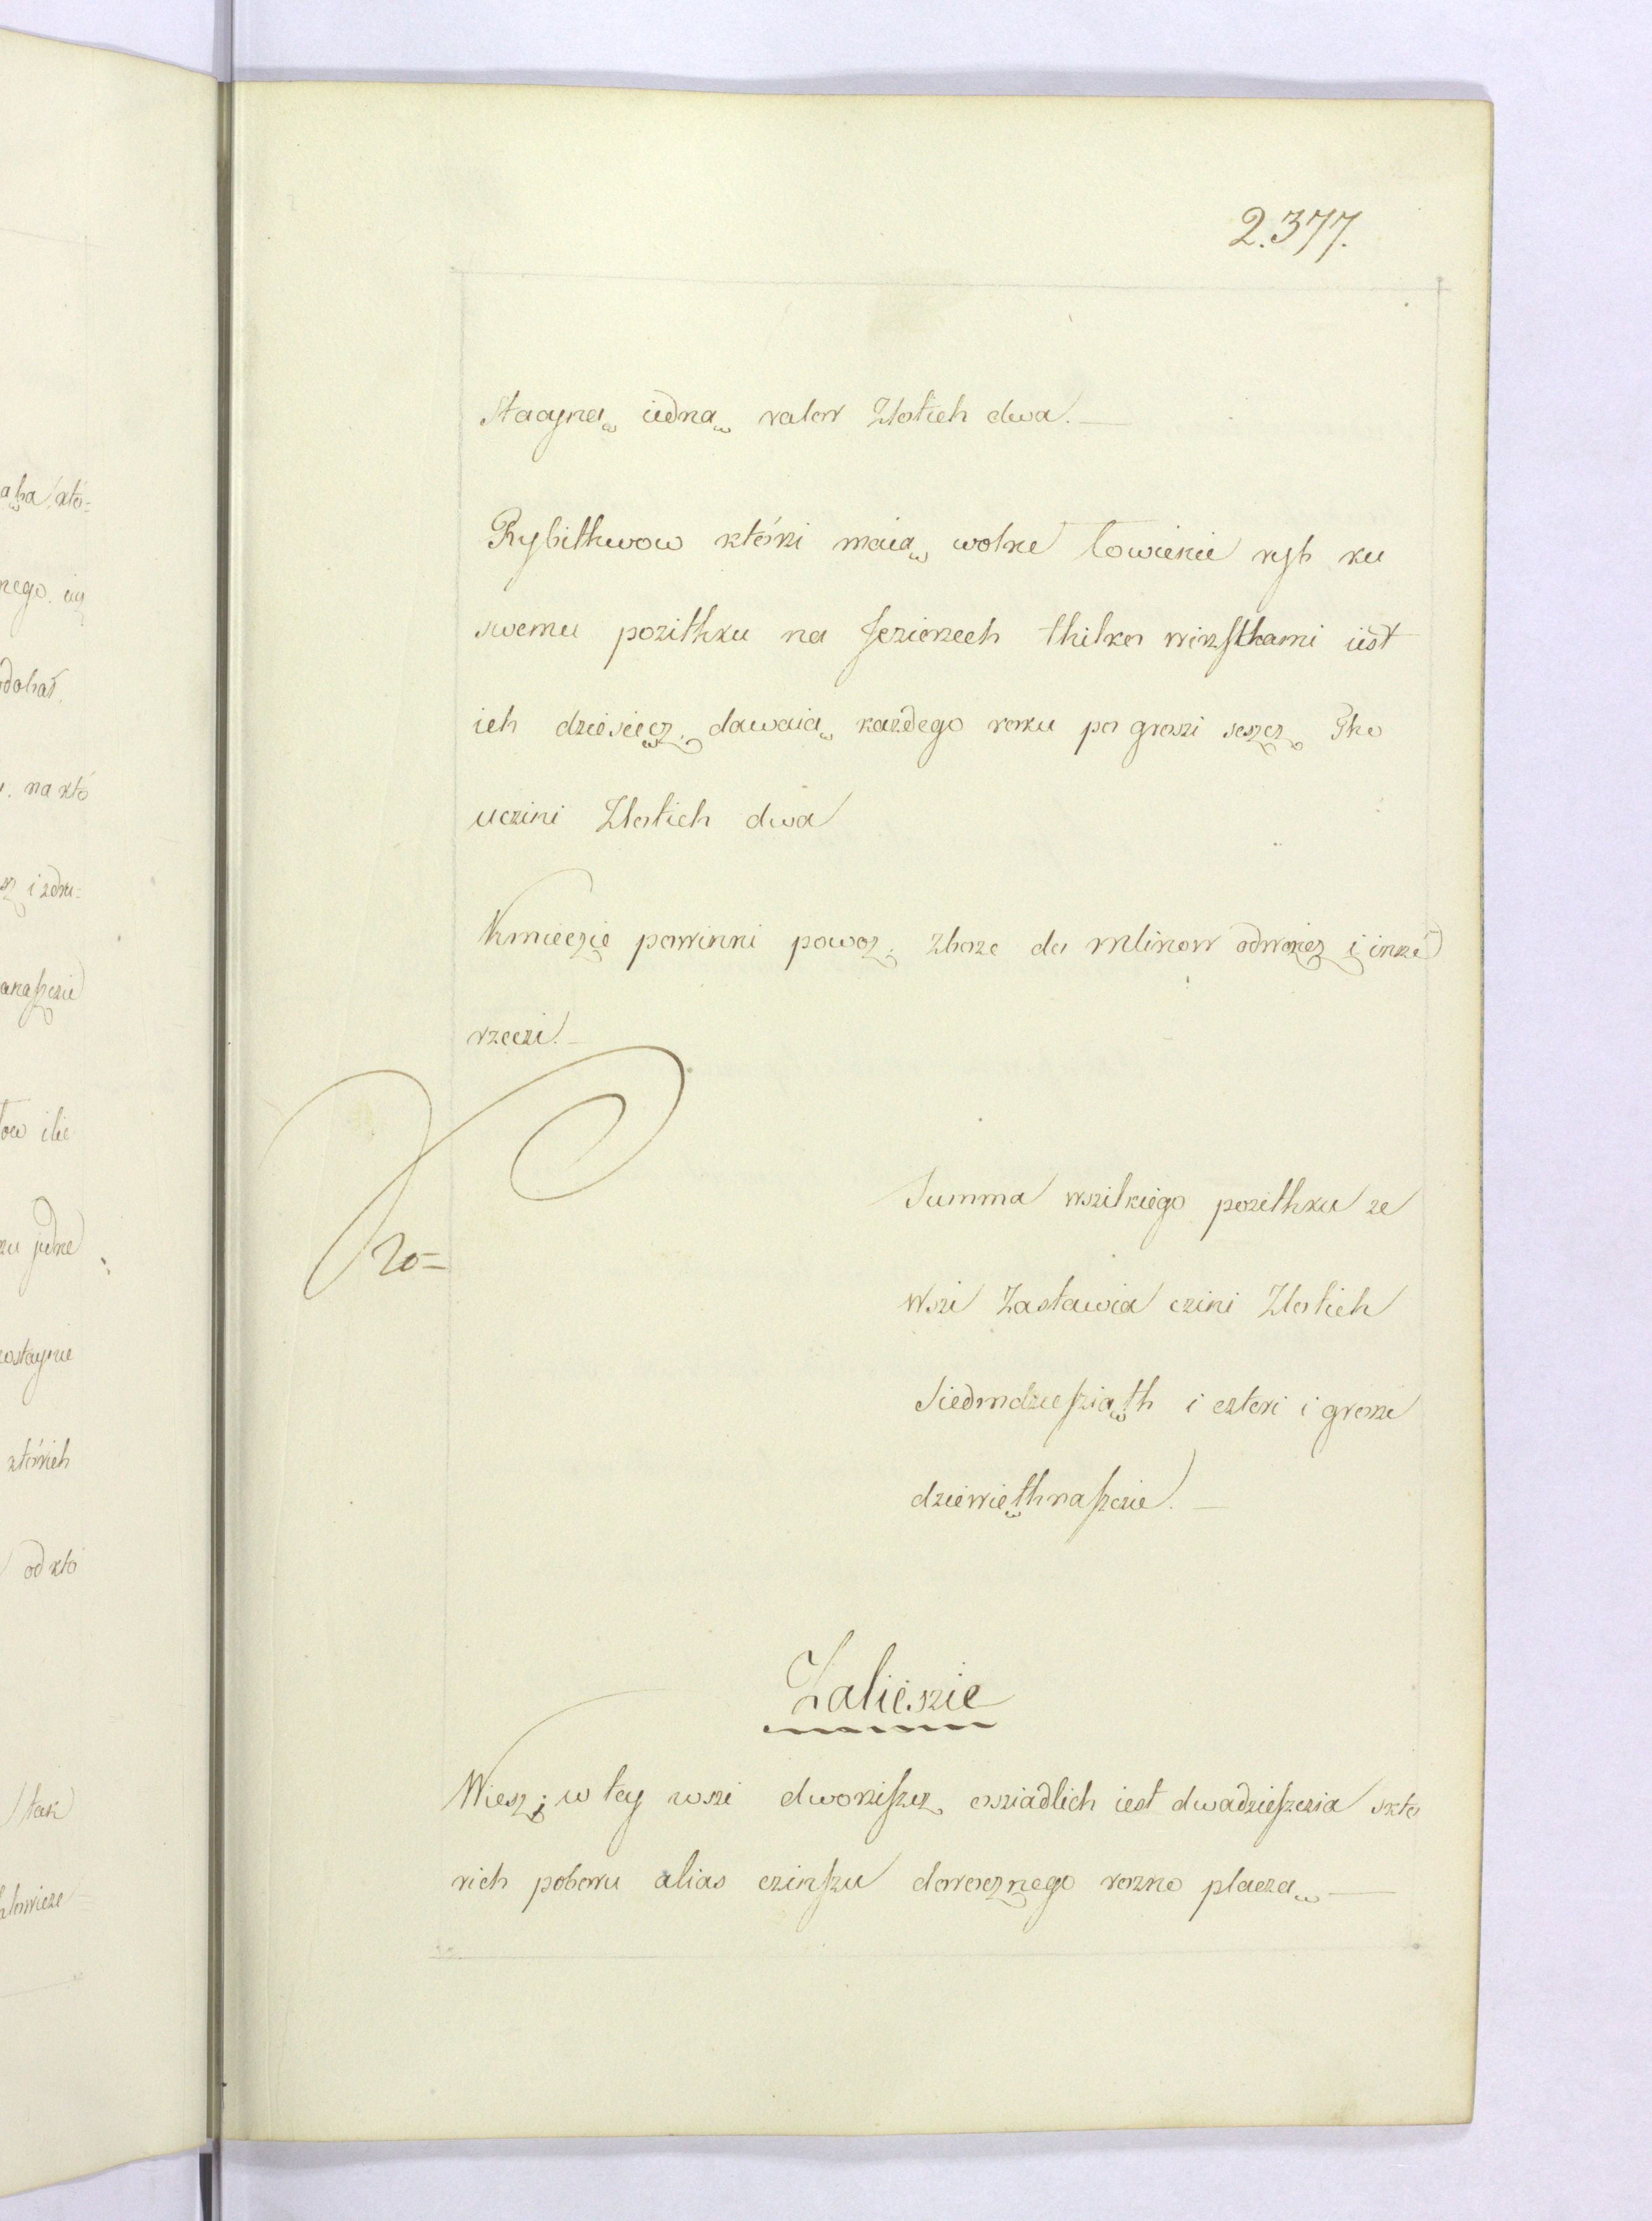 2.377.
Staaynę iedną valor Zlotich dwa. —
Rybithwow którzi maią wolne lowienie ryb ku
swemu pozithku na Jezierzech thilko wirzsthami iest
ich dziesięcz, dawaią każdego roku po groszi seszcz, Tho
uczini Zlotich dwa
Kmieczie powinni powoz, zboze do mlinow odwoziez i inne
rzeczi. —
Summa wszitkiego pozithku ze
wszi Zastawia czini Zlotich
Siedmdzieſziąth i czteri i grosze
dziewięthnaſzcie. —
20 =
Zalieszie
Wiesz; w tey wszi dworziſzcz osziadlich iest dwadzieſzczia skto
rich poboru alias czinſzu dorocznego rozno placzą —
kto=
nego.
na któ
jedne
których
od któ
tak